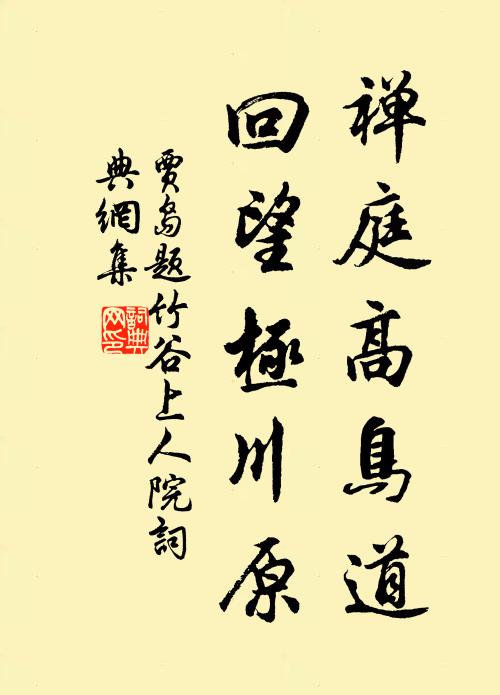 禅庭高鳥道
回望極川原
賈島題竹谷上人院詞
典網集
詞典
网印